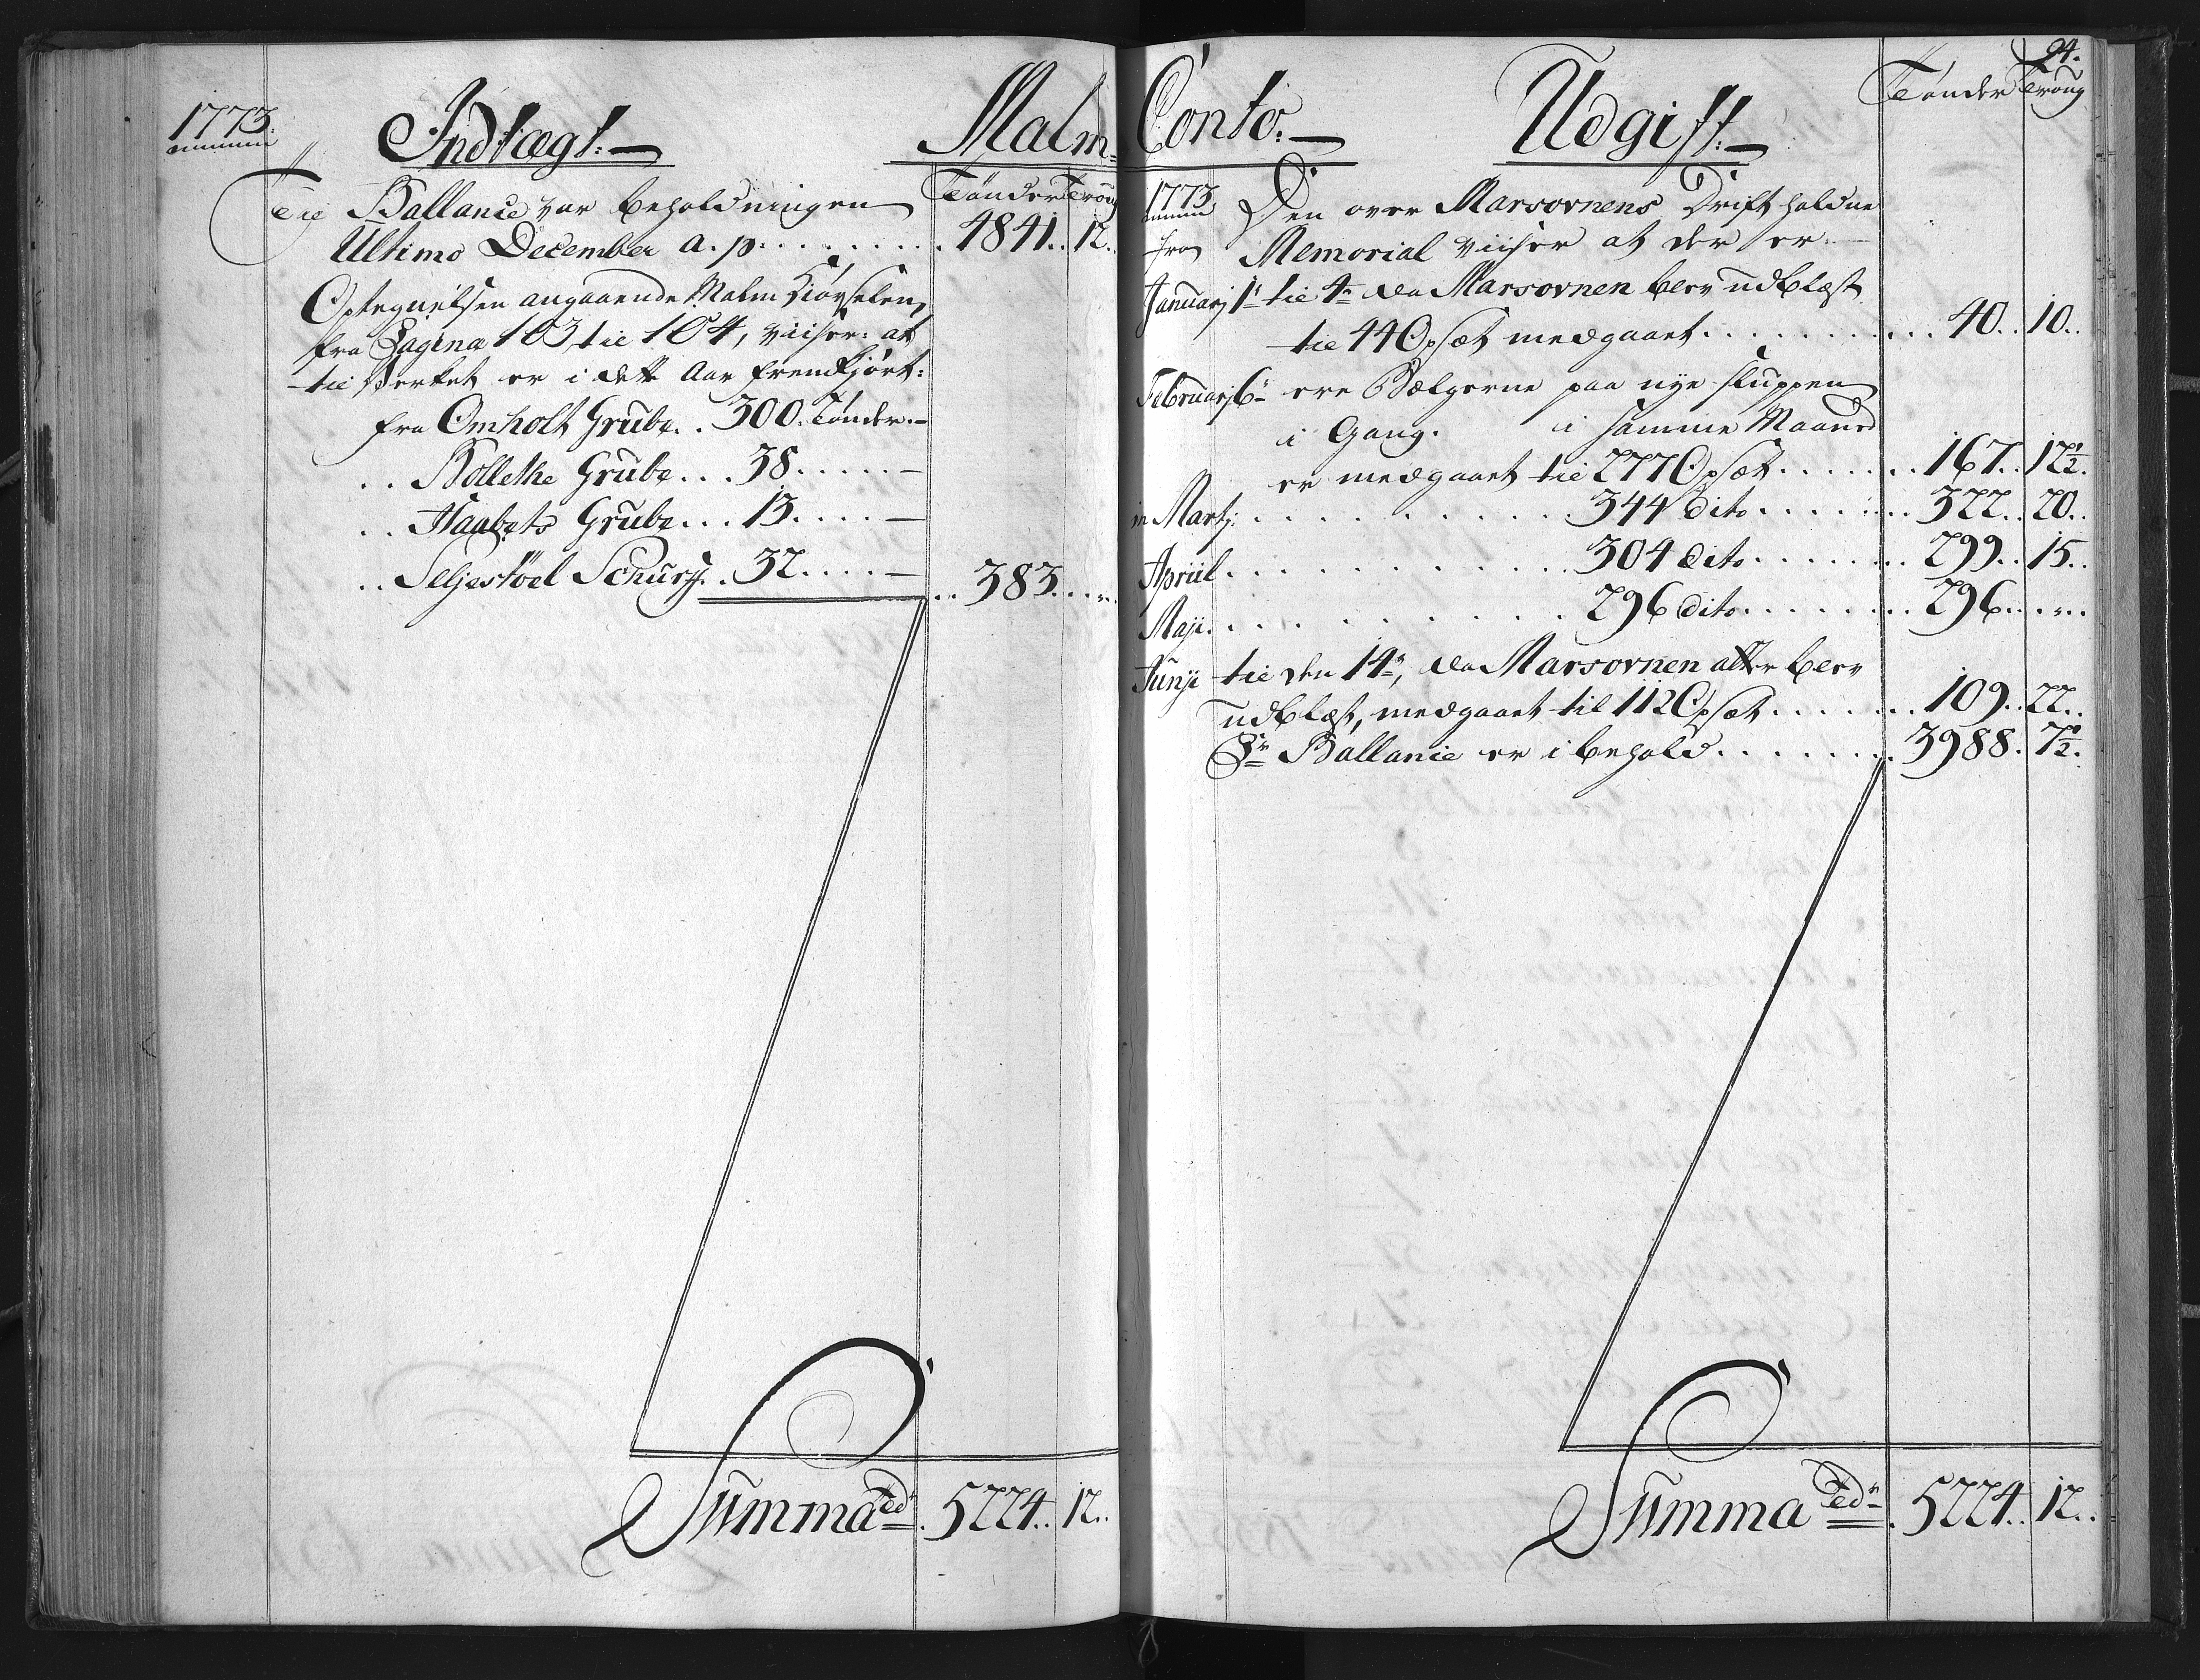 1773.
Indtægt.
Malm
Tønder Troug
Til Ballance var beholdningen
Ultimo December a. p. . . . . . . . . 4841. 12.
Optegnelsen angaaende Malm Kiørselen,
fra Pagina 103, til 104, viiser: at
til Verket er i dette Aar fremkjørt:
fra Omholt Grube. . 300. Tønder. —
. . Bollethe Grube. . . 38. . . . . —
. . Haabets Grube. . . 13. . . . —
. . Seljestöel Schurff. . 32. . . . — . . 383. . . „.
Summa Tdr. 5224. 12..
94.
Conto. —
Udgift. —
Tønder Troug
1773, Den over Marsovnens Drift holdne
fra Memorial viiser at der er. —
Januarj 1te til 4de da Marsovnen blev udblæst
til 44 Opsæt medgaaet. . . . . . . . . 40. . 10. .
Februarj 6te ere Bælgerne paa nye sluppen
i Gang. i samme Maaned
er medgaaet til 277 Opsæt. . . . . . . 167. . 12½.
in Martj: . . . . . . . . . . 344 dito. . . . . . . 322. . 20. .
Apriil. . . . . . . . . . . 304 dito. . . . . . . 299. . 15. .
Maji. . . . . . . . . . . 296 dito. . . . . . . 296. . . „. .
Junji til den 14de, da Marsovnen atter blev
udblæst, medgaaet til 112 Opsæt. . . . . . . 109. . 22. .
Pr Ballance er i behold. . . . . . . 3988. 7½.
Summa Tdr. 5224. 12. .